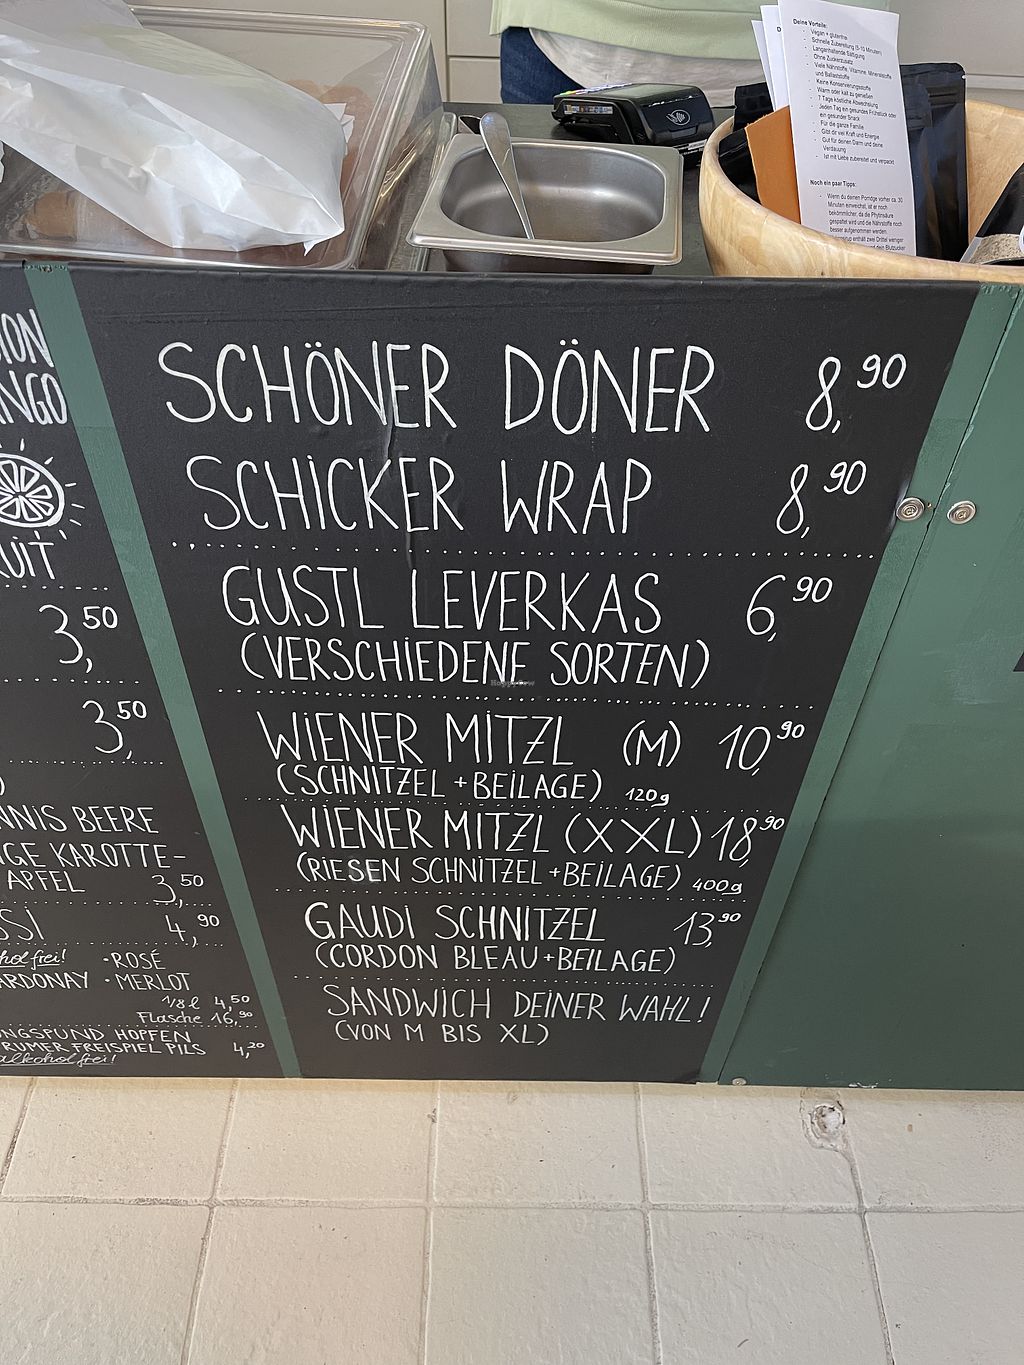 Deine Vorteile:
- Vegan + glutenfrei
- Schnelle Zubereitung (5-10 Minuten)
- Langanhaltende Sättigung
- Ohne Zuckerzusatz
- Viele Nährstoffe, Vitamine, Mineralstoffe
und Ballaststoffe
- Keine Konservierungsstoffe
- Warm oder kalt zu genießen
- 7 Tage köstliche Abwechslung
- Jeden Tag ein gesundes Frühstück oder
ein gesunder Snack
- Für die ganze Familie
- Gibt dir viel Kraft und Energie
- Gut für deinen Darm und deine
Verdauung
- Ist mit Liebe zubereitet und verpackt
Noch ein paar Tipps:
- Wenn du deinen Porridge vorher ca. 30
Minuten einweichst, ist er noch
bekömmlicher, da die Phytinsäure
gespalten wird und die Nährstoffe noch
besser aufgenommen werden.
enthält zwei Drittel weniger
dein Blutzucker
SCHÖNER DÖNER 8,90
SCHICKER WRAP 8,90
GUSTL LEVERKAS 6,90
(VERSCHIEDENE SORTEN)
WIENER MITZL (M) 10,90
(SCHNITZEL + BEILAGE) 120g
WIENER MITZL (XXL) 18,90
(RIESEN SCHNITZEL + BEILAGE) 400g
GAUDI SCHNITZEL 13,90
(CORDON BLEAU + BEILAGE)
SANDWICH DEINER WAHL!
(VON M BIS XL)
ION
NGO
UIT
3,50
3,50
)
NNIS BEERE
NGE KAROTTE-
APFEL 3,50
SSI 4,90
holfrei! • ROSÉ
ARDONAY • MERLOT
1/8 l 4,50
Flasche 16,90
UNGSPUND HOPFEN
RUMER FREISPIEL PILS 4,20
alkoholfrei!
HappyCow